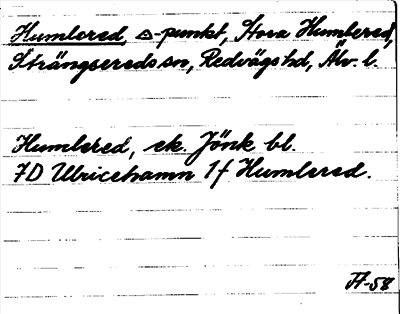 Humlered, △-punkt, Stora Humlered,
Strängsereds sn, Redvägs hd, Älv. l.
Humlered, ek. Jönk bl.
7D Ulricehamn 1f Humlered.
FF-58